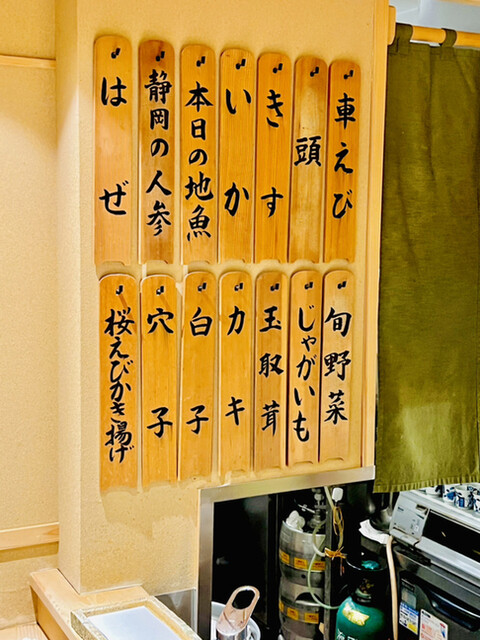 車えび
頭
きす
いか
本日の地魚
静岡の人参
はぜ
旬野菜
じゃがいも
玉取茸
カキ
白子
穴子
桜えびかき揚げ